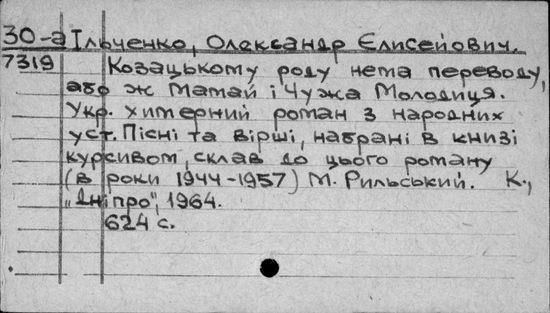 30-а Ільченко, Олександр Єлисейович.
7319 Козацькому роду нема переводу,
або ж Мамай і Чужа Молодиця.
Укр. химерний роман з народних
уст. Пісні та вірші, набрані в книзі
курсивом, склав до цього роману
(в роки 1944-1957) М. Рильський. К.,
"Дніпро", 1964.
624 с.